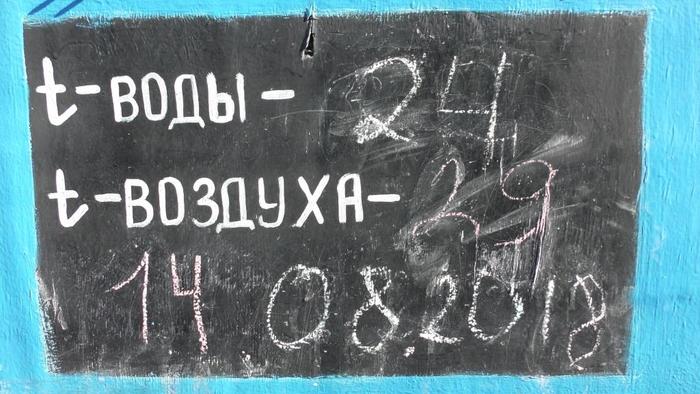 t-ВОДЫ- 24
t-ВОЗДУХА- 29
14.08.2018